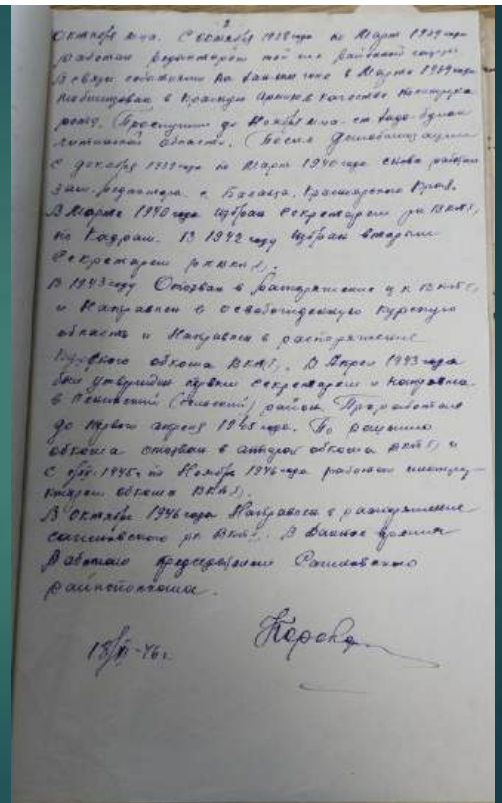 2
Октября м-ца. С октября 1938 года по Март 1939 года
работал редактором той же районой газеты.
В связи событиями на в Марте 1939 года
мобилизован в Красную армию в качестве политрука
роты. Прослужил до Ноября м-ца ст.
Читинской области. После демобилизации
с декабря 1939 года по Март 1940 года снова работал
зам. редактора. с. Балахта, Красноярского Края.
В Марте 1940 года избран секретарем рк ВКП(б)
по Кадрам. В 1942 году избран вторым
секретарем рк ВКП(б).
В 1943 году Отозван в распоряжение ЦК ВКП(б)
и Направлен в освобожденную Курскую
область и Направлен в распоряжение
обкома ВКП(б). В Апреле 1943 года
был утвержден первым секретарем и направлен
в Ленинский район. Проработал
до первого апреля 1945 года. По решению
обкома отозван в аппарат обкома ВКП(б) и
с 1945 г. по Ноябрь 1946 года работал инструк-
тором обкома ВКП(б).
В Октябре 1946 года Направлен в распоряжение
рк ВКП(б). В данное время
работаю председателем
райисполкома.
18/XI-46 г.